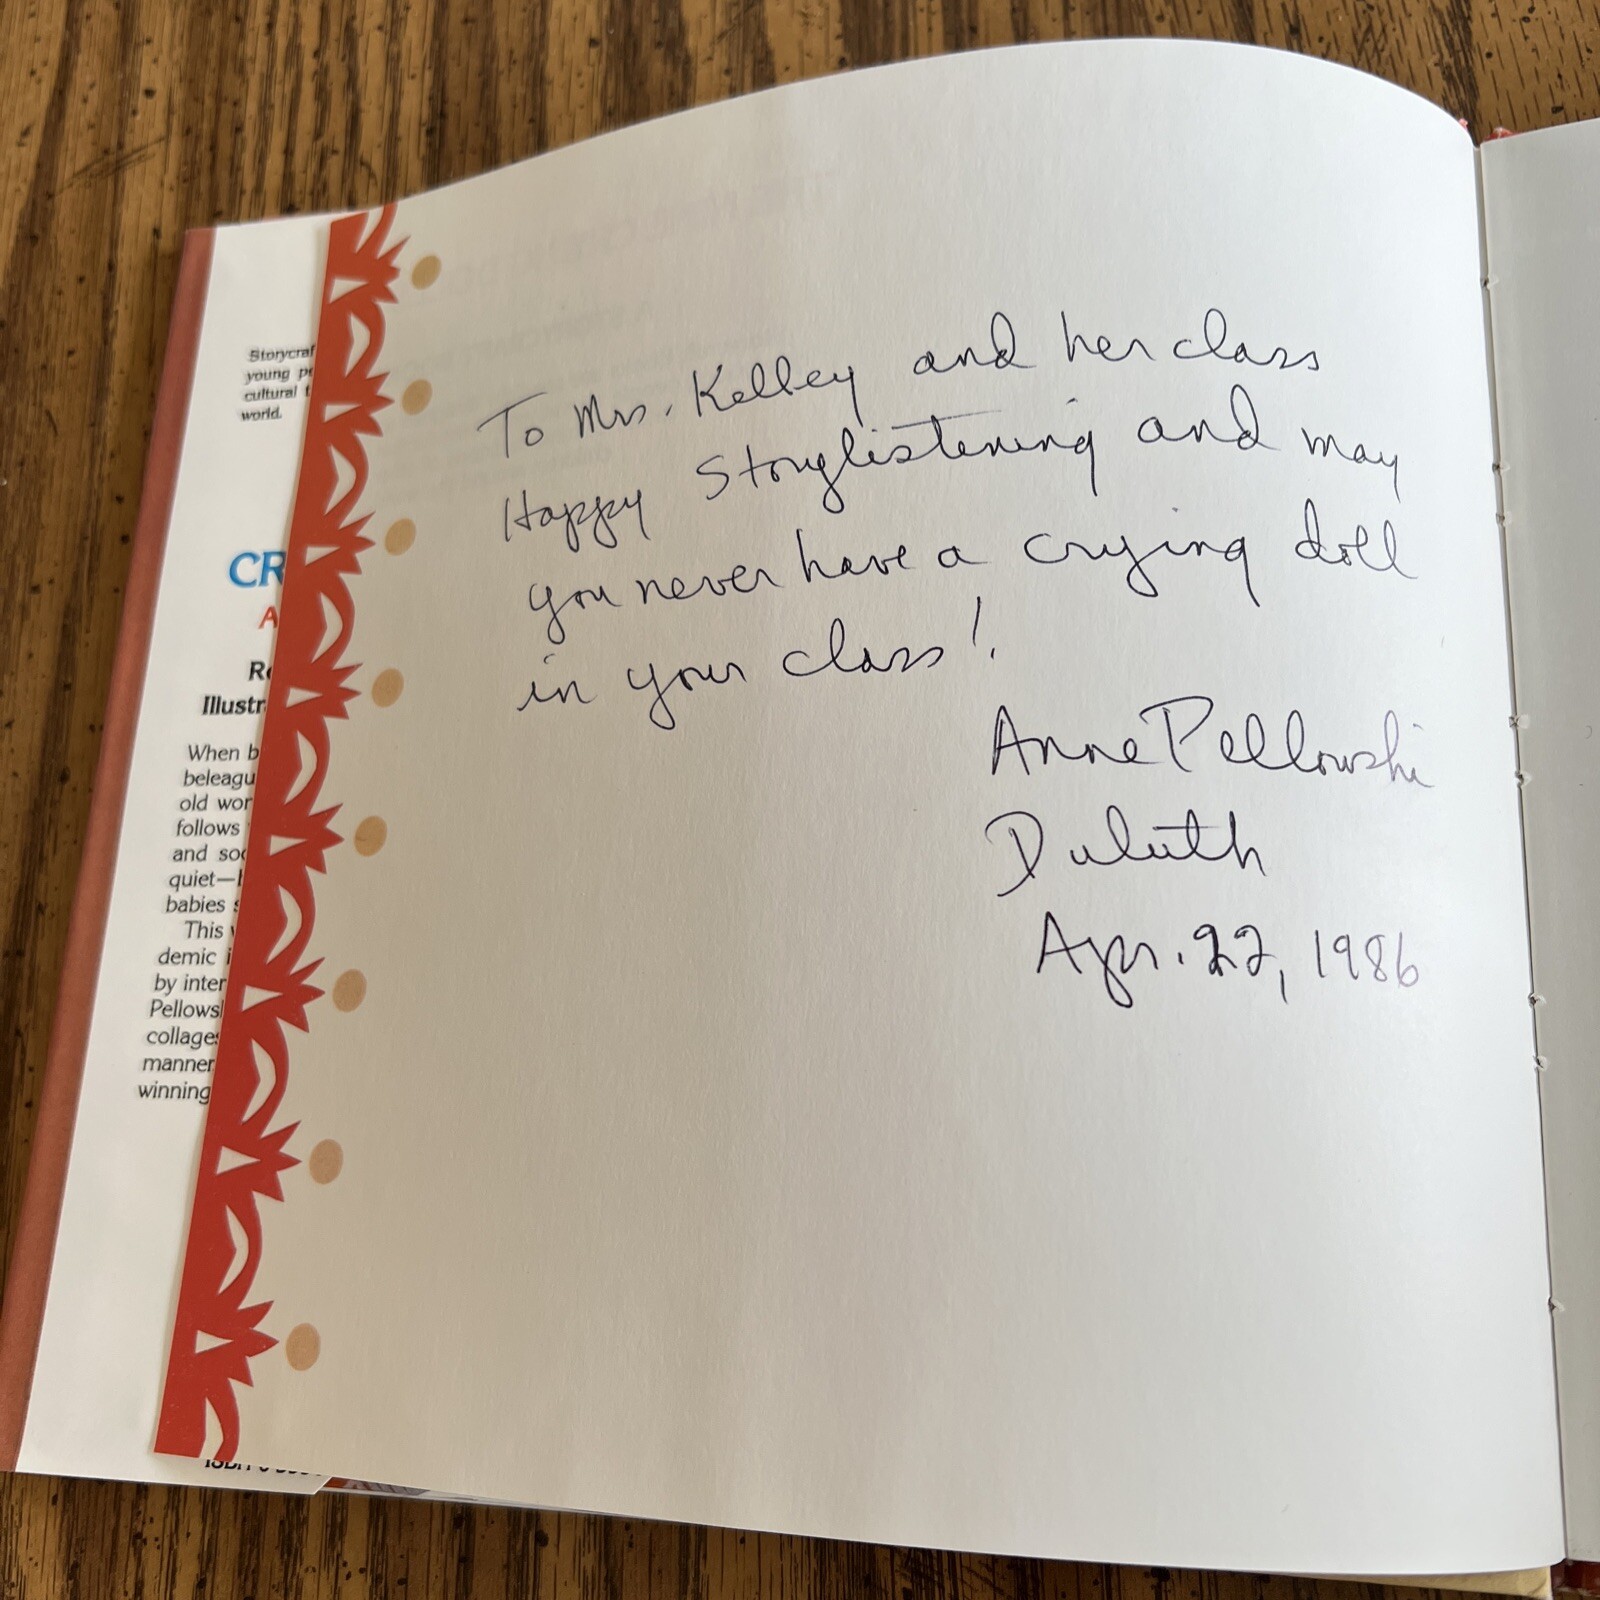 To Mrs. Kelley and her class
Happy Storylistening and may
you never have a crying doll
in your class!
Anne Pellowski
Duluth
Apr. 22, 1986
Storycraf
young pe
cultural t
world.
CR
A
Re
Illustr
When b
beleagu
old wor
follows
and soc
quiet—h
babies s
This
demic i
by inter
Pellowsl
collages
manner
winning